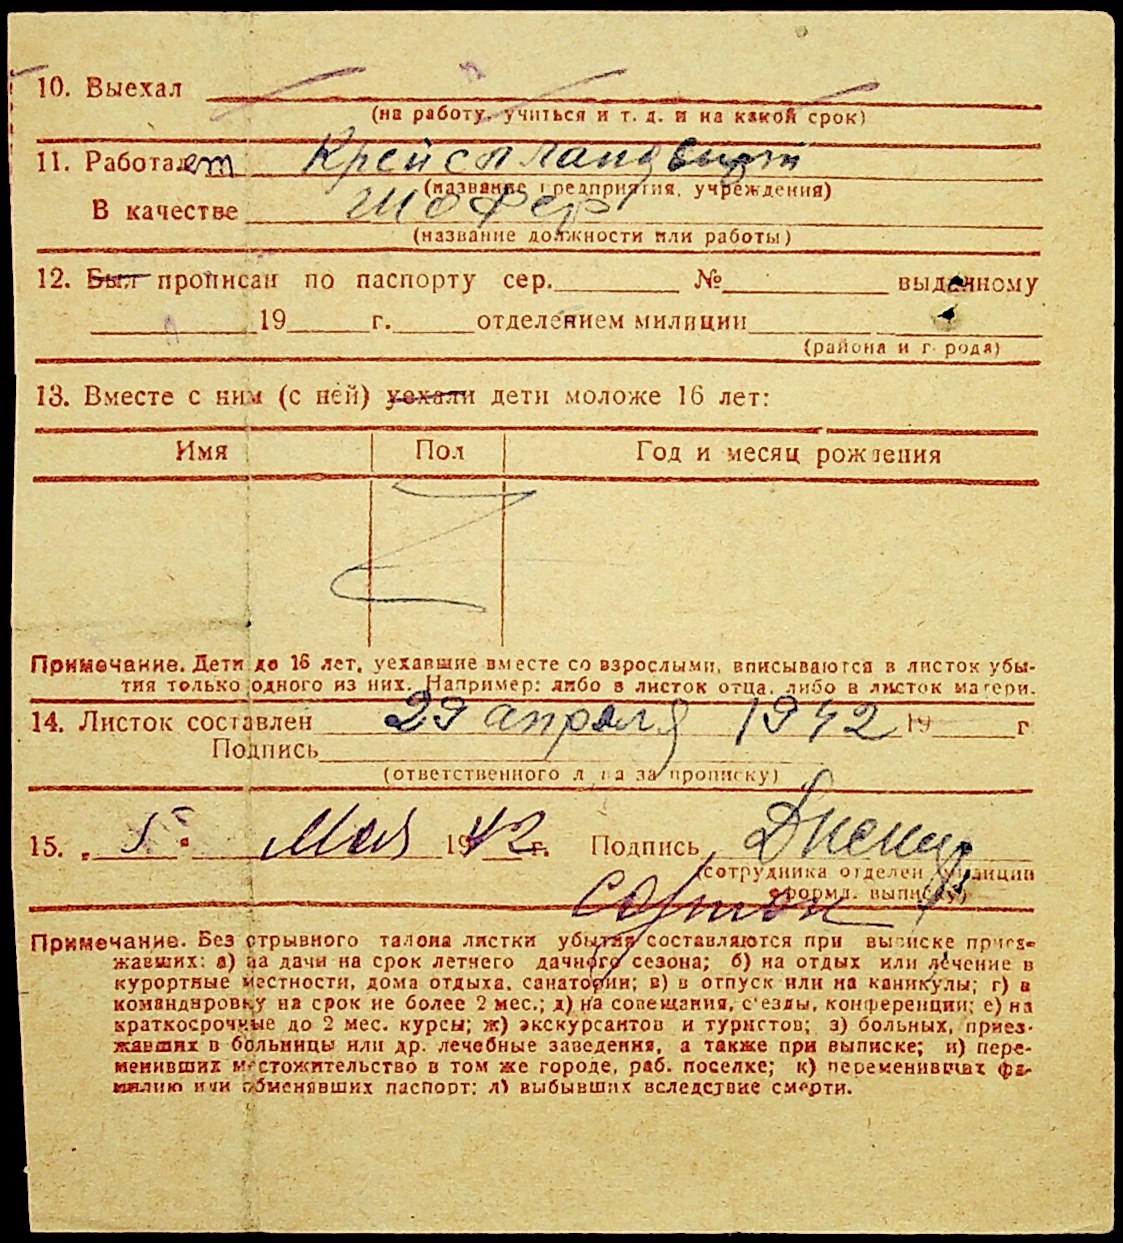 10. Выехал
(на работу, учиться и т. д. и на какой срок)
11. Работает Крейсландвирт
(название предприятия, учреждения)
В качестве шофер
(название должности или работы)
12. Был прописан по паспорту сер. № выданному
19 г. отделением милиции
(района и города)
13. Вместе с ним (с ней) уехали дети моложе 16 лет:
Имя Пол Год и месяц рождения
Примечание. Дети до 16 лет, уехавшие вместе со взрослыми, вписываются в листок убы-
тия только одного из них. Например: либо в листок отца, либо в листок матери.
14. Листок составлен 29 апреля 1942 19 г
Подпись
(ответственного лица за прописку)
15. Мая 1942 г. Подпись
(сотрудника отделен милиции
оформл. выписку)
Примечание. Без отрывного талона листки убытия составляются при выписке приез-
жавших: а) на дачи на срок летнего дачного сезона; б) на отдых или лечение в
курортные местности, дома отдыха, санатории; в) в отпуск или на каникулы; г) в
командировку на срок не более 2 мес.; д) на совещания, с'езды, конференции; е) на
краткосрочные до 2 мес. курсы; ж) экскурсантов и туристов; з) больных, приез-
жавших в больницы или др. лечебные заведения, а также при выписке; и) пере-
менивших местожительство в том же городе, раб. поселке; к) переменивших фа-
милию или обменявших паспорт; л) выбывших вследствие смерти.